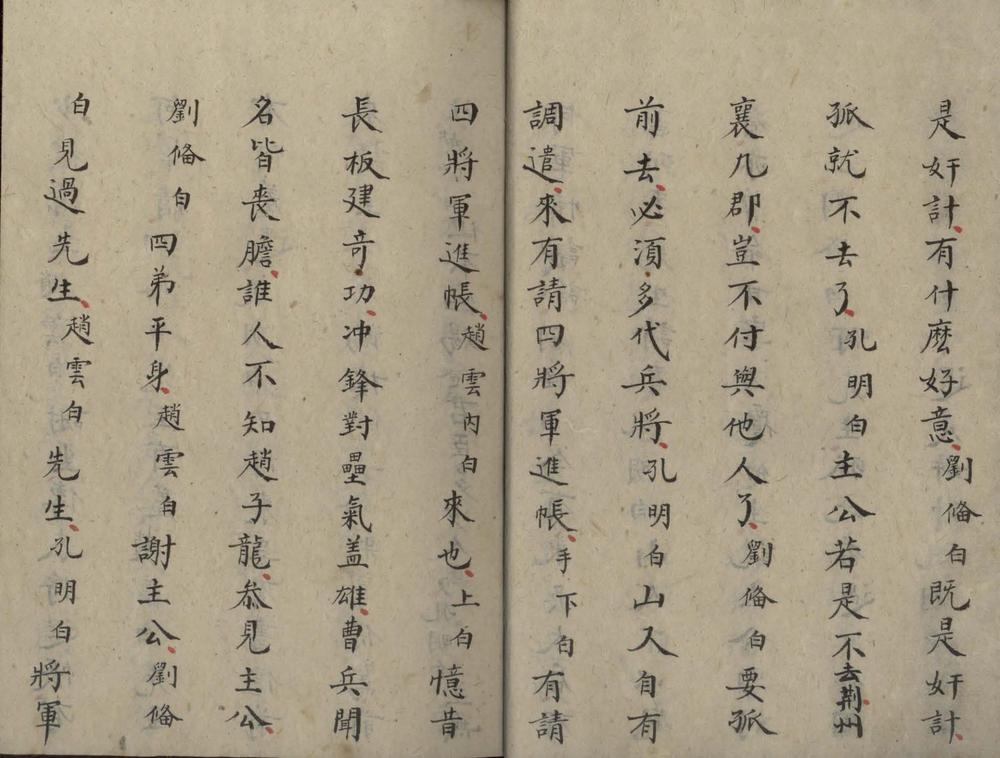 是奸計、有什麽好意、劉俻白既是奸計、
孤就不去了、孔明白主公若是不去荆州
襄几郡、豈不付與他人了、劉俻白要孤
前去、必湏多代兵將、孔明白山人自有
調遣、來有請四將軍進帳、手下白有請
四將軍進帳、趙雲内白來也、上白憶昔
長板建竒功、冲鋒對壘氣盖雄、曹兵聞
名皆丧膽、誰人不知趙子龍、叅見主公、
劉俻白四弟平身、趙雲白謝主公、劉俻
白見過先生、趙雲白先生、孔明白將軍